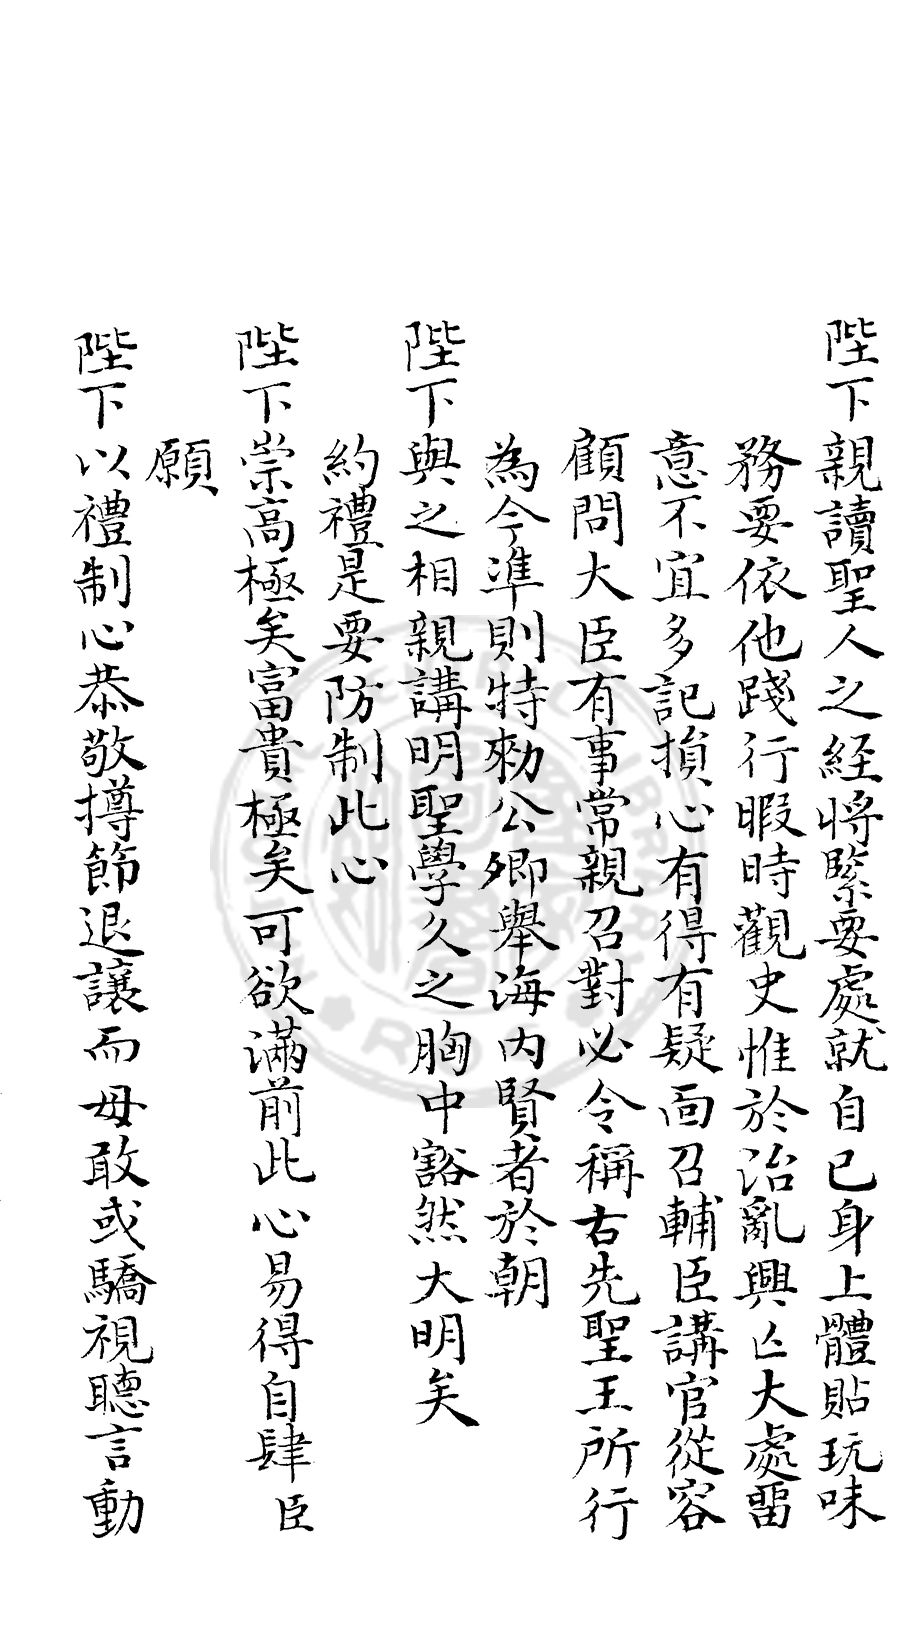 陛下親讀聖人之経將緊要處就自已身上體貼玩味
務要依他踐行暇時觀史惟於治亂興亾大處畱
意不宜多記損心有得有疑面召輔臣講官從容
顧問大臣有事常親召對必令稱古先聖王所行
為今準則特勑公卿舉海内賢者於朝
陛下與之相親講明聖學久之胸中豁然大明矣
約禮是要防制此心
陛下崇高極矣富貴極矣可欲滿前此心易得自肆臣
願
陛下以禮制心恭敬撙節退讓而毋敢或驕視聽言動